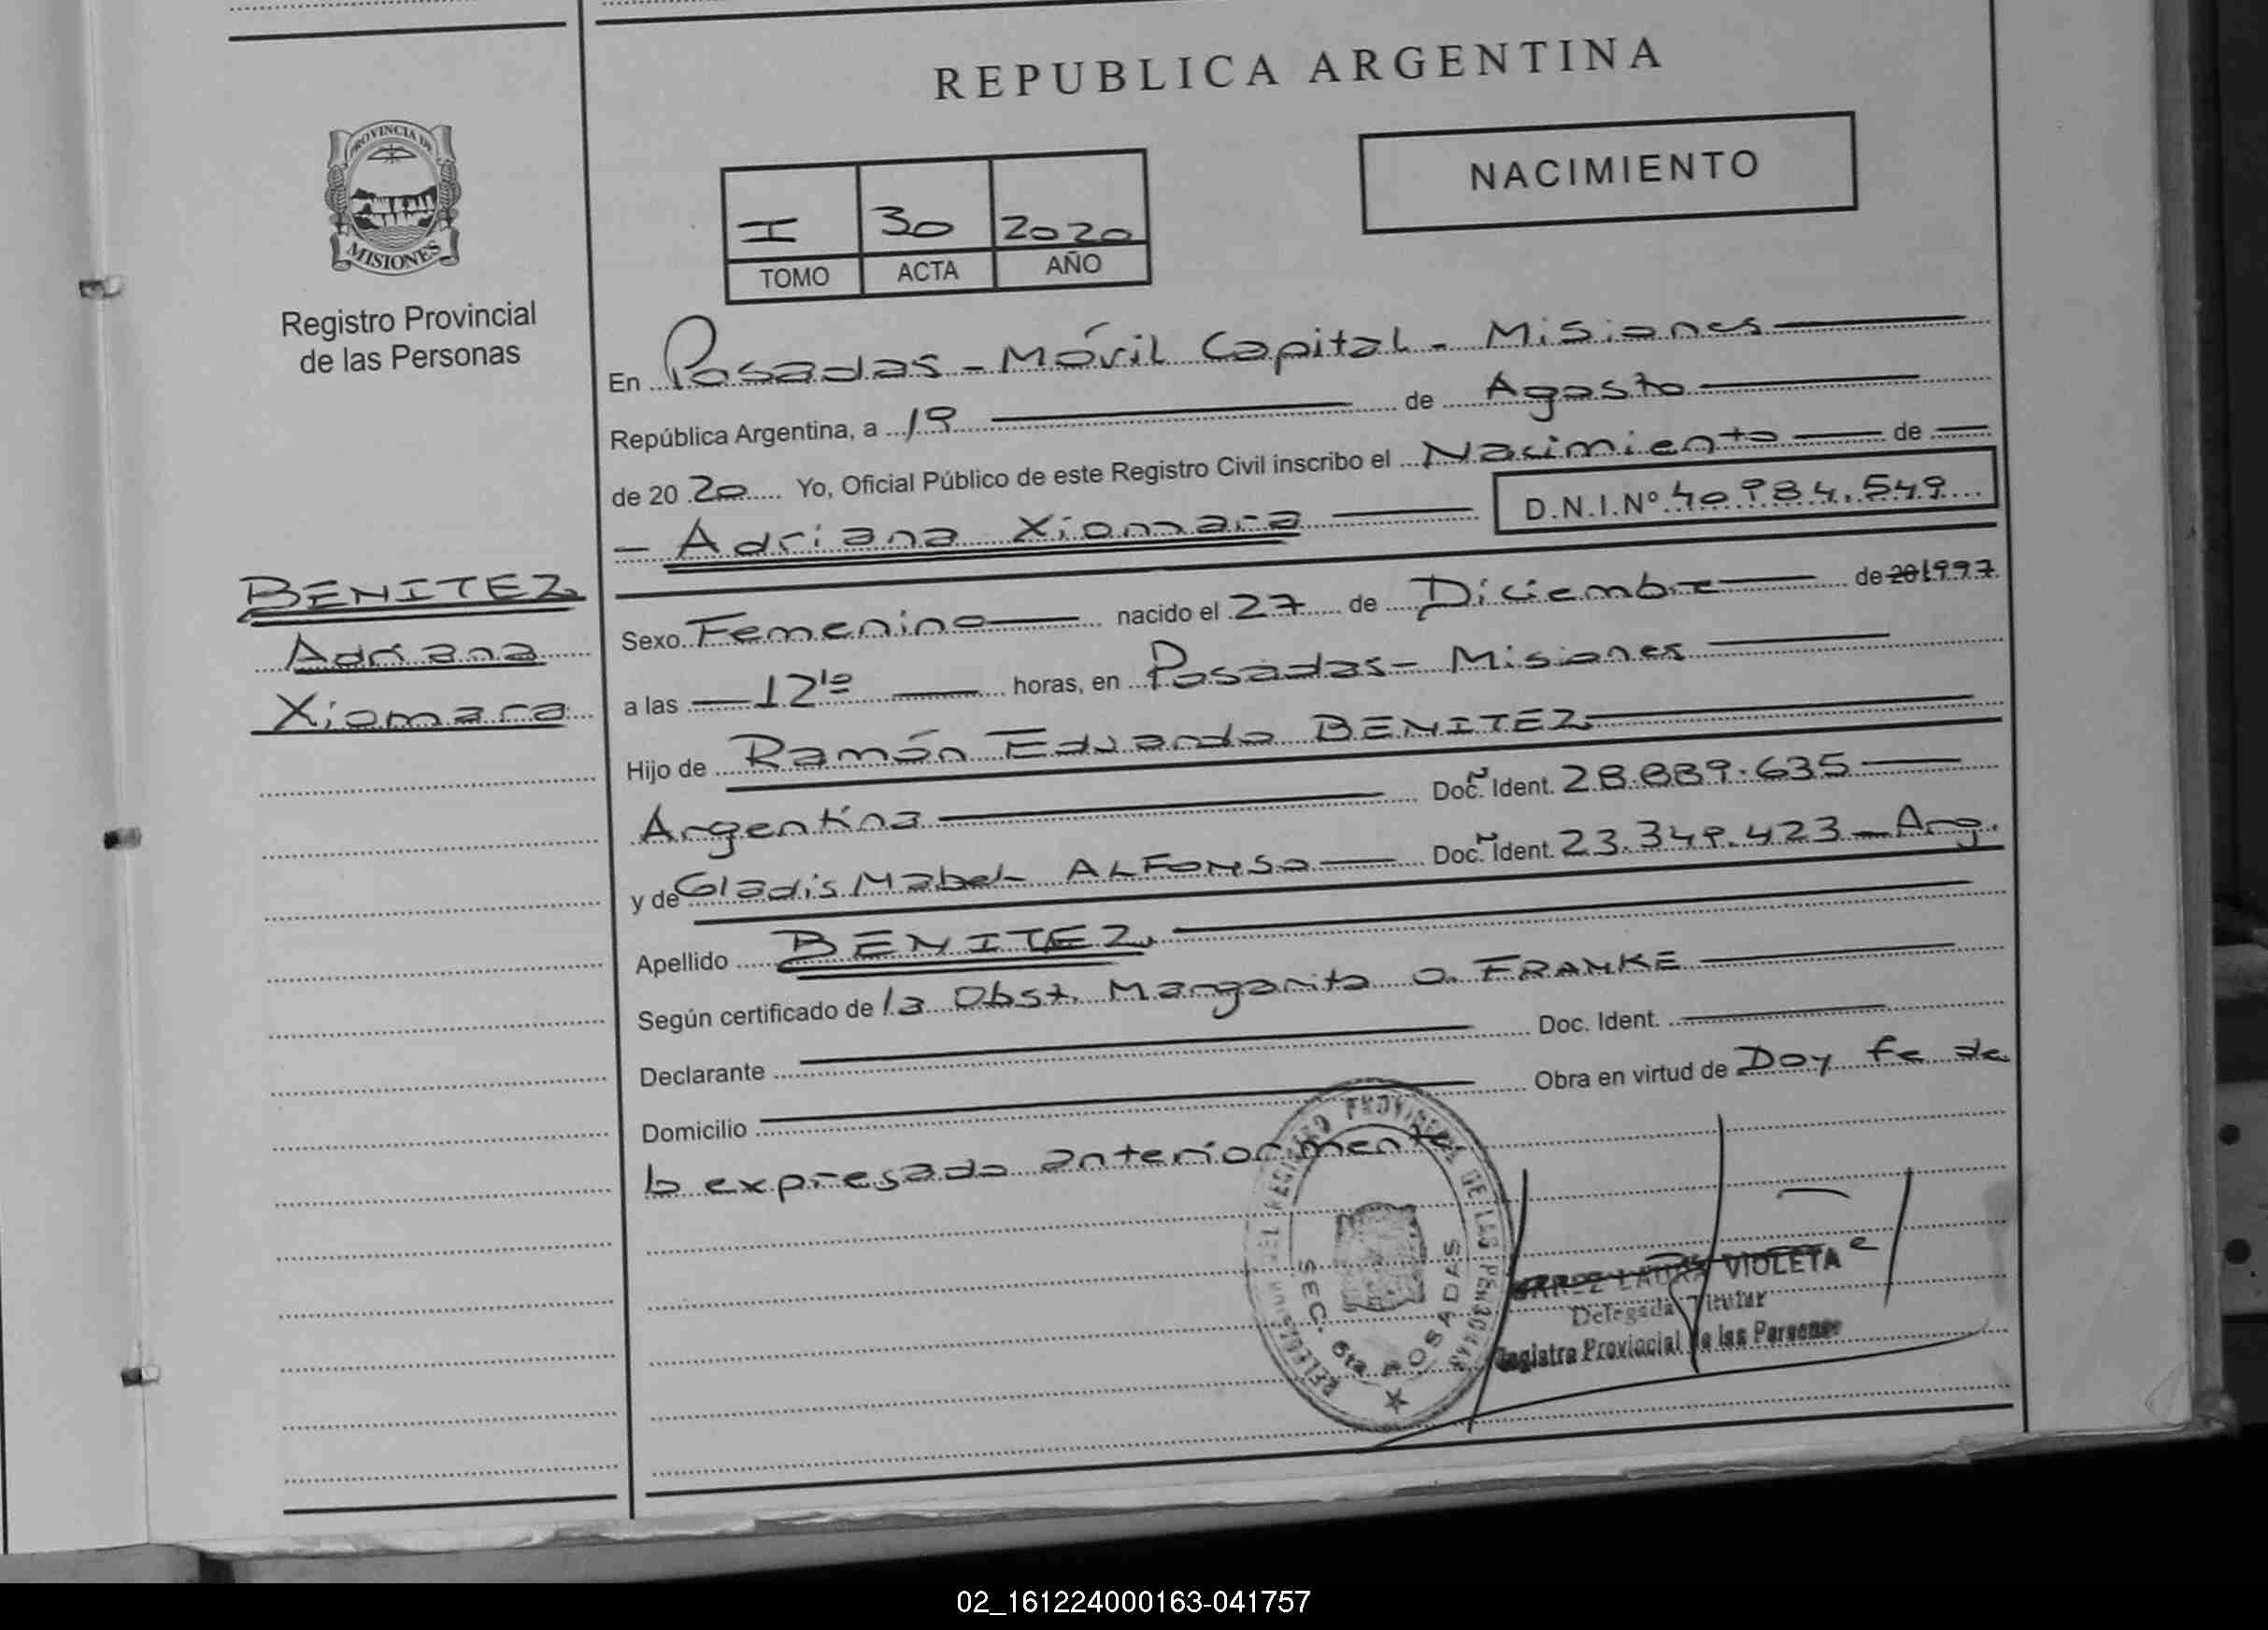 REPUBLICA ARGENTINA
PROVINCIA DE
MISIONES
Registro Provincial
de las Personas
NACIMIENTO
I 30 2020
TOMO ACTA AÑO
En Posadas - Móvil Capital - Misiones
República Argentina, a 19 de Agosto
de 20 20 Yo, Oficial Público de este Registro Civil inscribo el Nacimiento de
- Adriana Xiomara D.N.I.Nº 40.984.549
BENITEZ
Adriana
Xiomara
Sexo Femenino nacido el 27 de Diciembre de 20 1997
a las 12 10 horas, en Posadas - Misiones
Hijo de Ramón Eduardo BENITEZ
Argentina Doc. Ident. 28.889.635
y de Gladis Mabel ALFONSO Doc. Ident. 23.349.423 - Arg.
Apellido BENITEZ
Según certificado de la Obst. Margarita O. FRANKE
Declarante Doc. Ident.
Domicilio Obra en virtud de Doy fe de
lo expresado anteriormente
REGISTRO PROVINCIAL DE LAS PERSONAS
SEC. 6ta. POSADAS
LAURA VIOLETA
Delegada Titular
Registro Provincial de las Personas
02_161224000163-041757